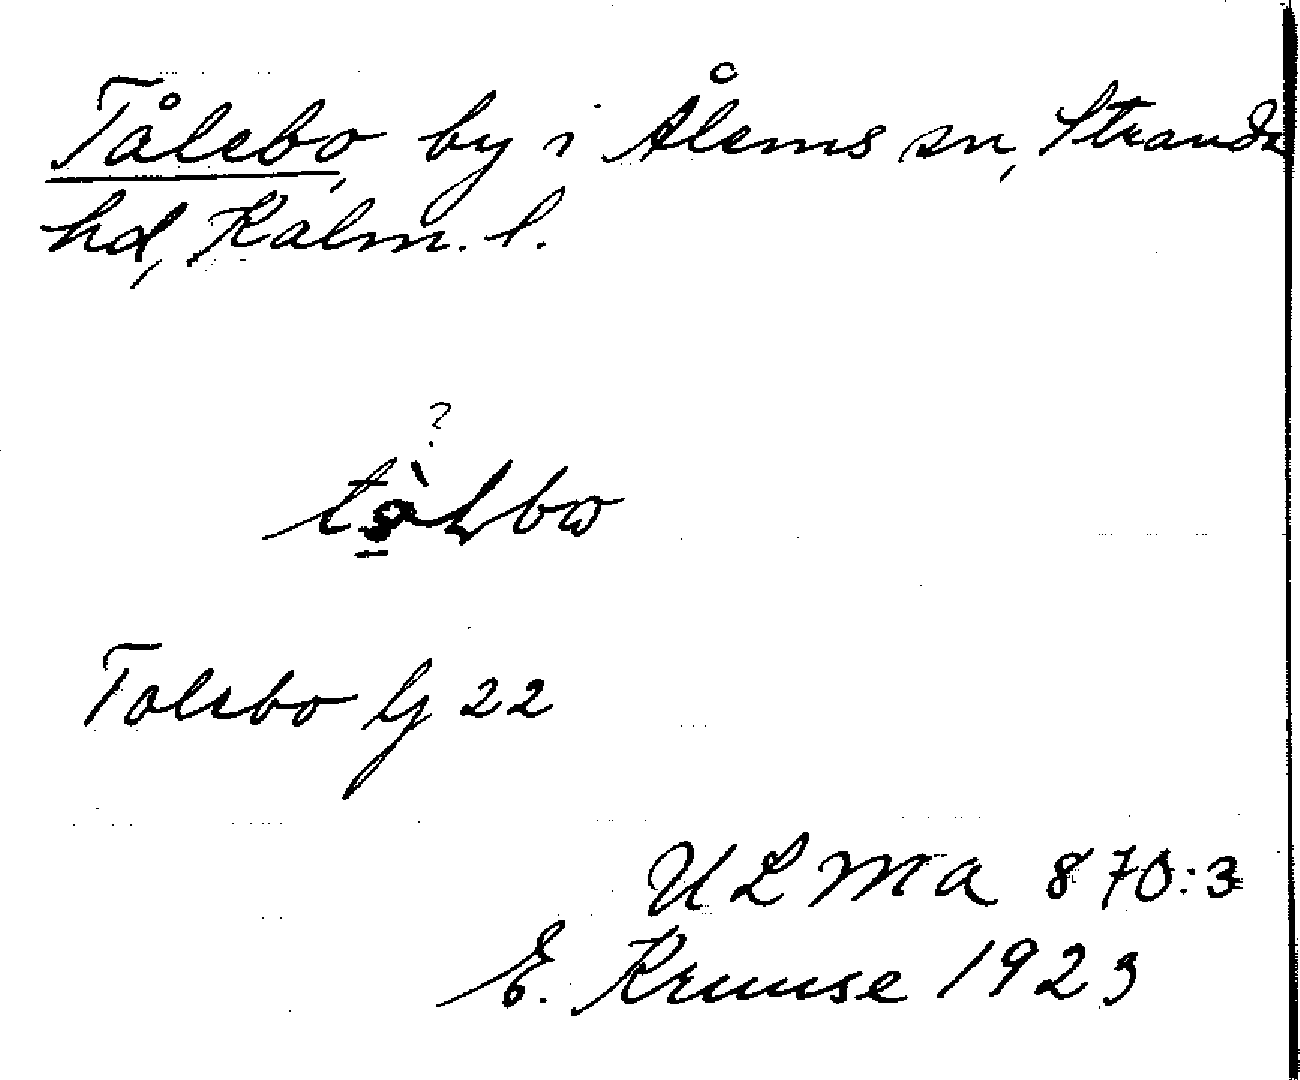 Tålebo, by i Ålems sn, Stranda
hd, Kalm. l.
?
Tolebo Gj 22
ULMA 870:3
E. Kruuse 1923